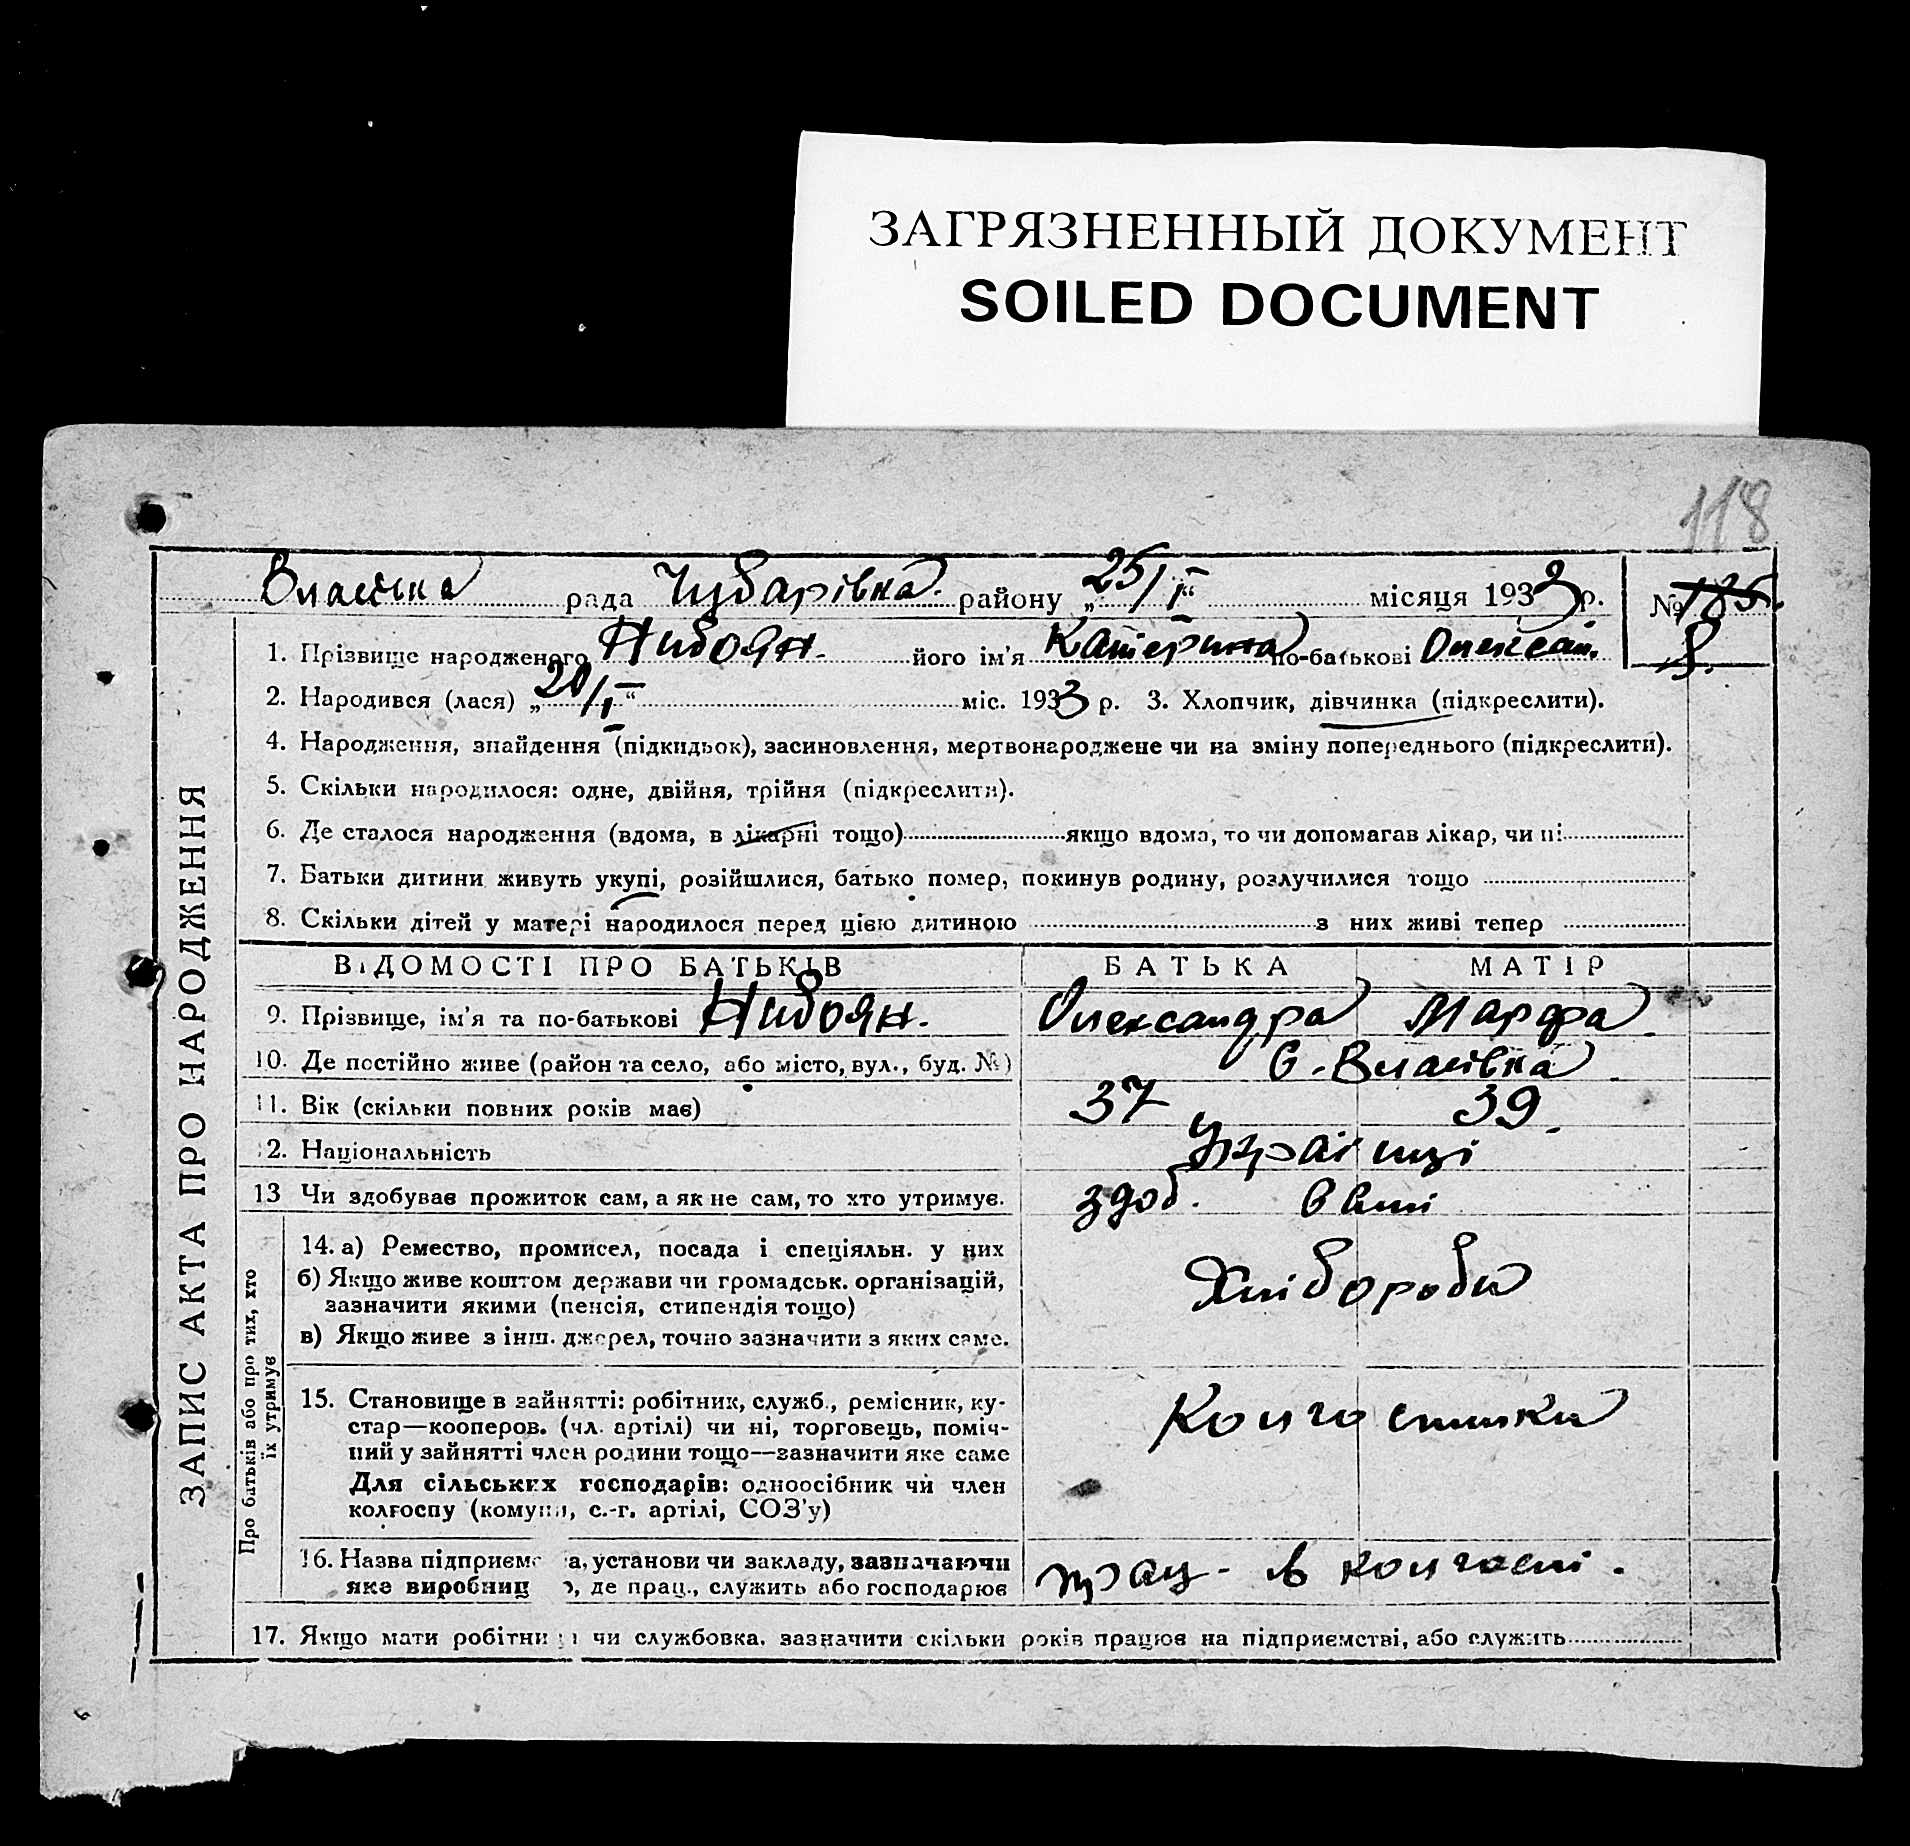 ЗАГРЯЗНЕННЫЙ ДОКУМЕНТ
SOILED DOCUMENT
118
Власівка рада Чубарівка району „25/I“ місяця 1933 р. № 185.
8.
1. Прізвище народженого Нибоян. його ім’я Катерина по-батькові Олексан.
2. Народився (лася) „20/I“ міс. 1933 р. 3. Хлопчик, дівчинка (підкреслити).
4. Народження, знайдення (підкидьок), засиновлення, мертвонароджене чи на зміну попереднього (підкреслити).
5. Скільки народилося: одне, двійня, трійня (підкреслити).
6. Де сталося народження (вдома, в лікарні тощо) якщо вдома, то чи допомагав лікар, чи ні
7. Батьки дитини живуть укупі, розійшлися, батько помер, покинув родину, розлучилися тощо
8. Скільки дітей у матері народилося перед цією дитиною з них живі тепер
ЗАПИС АКТА ПРО НАРОДЖЕННЯ
ВІДОМОСТІ ПРО БАТЬКІВ БАТЬКА МАТІР
9. Прізвище, ім’я та по-батькові Нибоян. Олександра Марфа
10. Де постійно живе (район та село, або місто, вул., буд. №) С. Власівка
11. Вік (скільки повних років має) 37 39
12. Національність Українці
13 Чи здобував прожиток сам, а як не сам, то хто утримує. здоб.
Про батьків або про тих, хто
їх утримує
14. а) Ремество, промисел, посада і спеціяльн. у них
б) Якщо живе коштом держави чи громадськ. організацій,
зазначити якими (пенсія, стипендія тощо)
в) Якщо живе з інш. джерел, точно зазначити з яких саме.
Хлібороби
15. Становище в зайнятті: робітник, служб., ремісник, ку-
стар—кооперов. (чл. артілі) чи ні, торговець, поміч-
ний у зайнятті член родини тощо—зазначити яке саме
Для сільських господарів: одноосібник чи член
колгоспу (комуни, с.-г. артілі, СОЗ’у)
Колгоспники
16. Назва підприємс а, установи чи закладу, зазначаючи
яке виробниц о, де прац., служить або господарює
прац. в колгоспі.
17. Якщо мати робітни чи службовка, зазначити скільки років працює на підприємстві, або служить